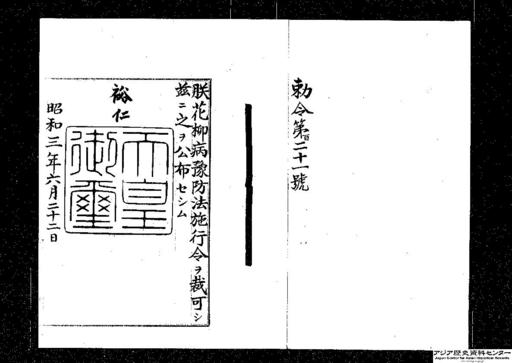 勅令第百二十一號
朕花柳病豫防法施行令ヲ裁可シ
茲ニ之ヲ公布セシム
裕仁
天皇
御璽
昭和三年六月二十二日
アジア歴史資料センター
Japan Center for Asian Historical Records